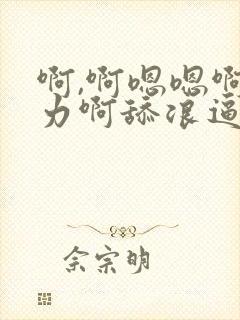 啊,啊嗯嗯啊
力啊舔浪逼
佘宗明